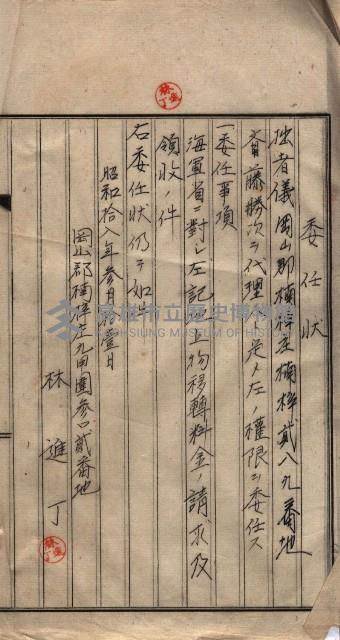 委任狀
拙者儀岡山郡楠梓庄楠梓貳八九番地
齊藤勝次ヲ代理人ト定メ左ノ權限ヲ委任ス
一委任事項
海軍省ニ對シ左記 物移轉料金ノ請求及
領收ノ件
右委任狀仍テ如件
昭和拾八年參月 壹日
岡山郡楠梓庄九甲圍參〇貳番地
林進丁
高雄市立歷史博物館
KAOHSIUNG MUSEUM OF HISTORY